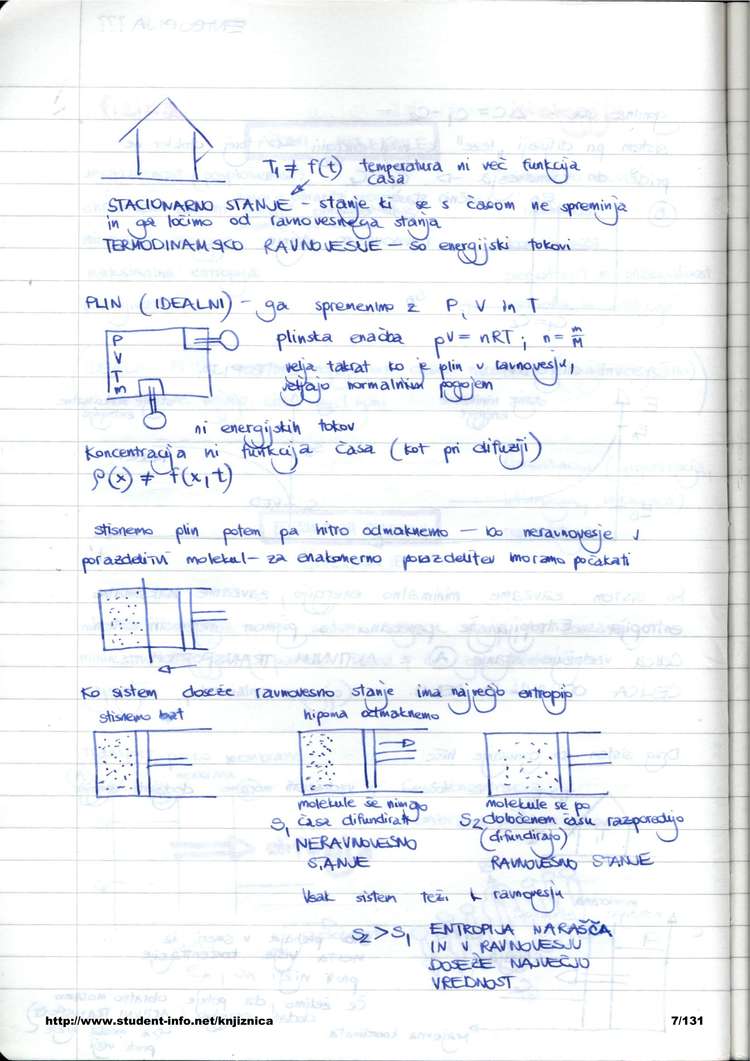 T₁ ≠ f(t) temperatura ni več funkcija
časa
STACIONARNO STANJE – stanje ki se s časom ne spreminja
in ga ločimo od ravnovesnega stanja
TERMODINAMSKO RAVNOVESJE – so energijski tokovi
PLIN (IDEALNI) – ga spremenimo z P, V in T
P
V
T
m
plinska enačba pV = nRT ; n = m/M
velja takrat ko je plin v ravnovesju,
veljajo normalnim pogojem
ni energijskih tokov
Koncentracija ni funkcija časa (kot pri difuziji)
ρ(x) ≠ f(x,t)
stisnemo plin potem pa hitro odmaknemo – bo neravnovesje v
porazdelitvi molekul – za enakomerno porazdelitev moramo počakati
Ko sistem doseže ravnovesno stanje ima največjo entropijo
stisnemo bat
hipoma odmaknemo
molekule še nimajo
S₁ časa difundirati
NERAVNOVESNO
STANJE
molekule se po
S₂ določenem času razporedijo
(difundirajo)
RAVNOVESNO STANJE
Vsak sistem teži k ravnovesju
S₂ > S₁ ENTROPIJA NARAŠČA
IN V RAVNOVESJU
DOSEŽE NAJVEČJO
VREDNOST
http://www.student-info.net/knjiznica
7/131